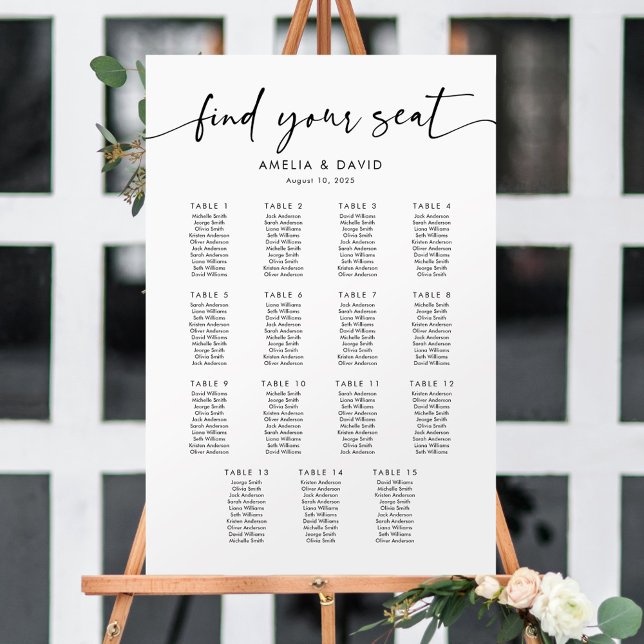 find your seat
AMELIA & DAVID
August 10, 2025
TABLE 1
Michelle Smith
Jeorge Smith
Olivia Smith
Kristen Anderson
Oliver Anderson
Jack Anderson
Sarah Anderson
Liana Williams
Seth Williams
David Williams
TABLE 2
Jack Anderson
Sarah Anderson
Liana Williams
Seth Williams
David Williams
Michelle Smith
Jeorge Smith
Olivia Smith
Kristen Anderson
Oliver Anderson
TABLE 3
David Williams
Michelle Smith
Jeorge Smith
Olivia Smith
Kristen Anderson
Oliver Anderson
Jack Anderson
Sarah Anderson
Liana Williams
Seth Williams
TABLE 4
Kristen Anderson
Oliver Anderson
Jack Anderson
Sarah Anderson
Liana Williams
Seth Williams
David Williams
Michelle Smith
Jeorge Smith
Olivia Smith
TABLE 5
Sarah Anderson
Liana Williams
Seth Williams
Kristen Anderson
Oliver Anderson
David Williams
Michelle Smith
Jeorge Smith
Olivia Smith
Jack Anderson
TABLE 6
Liana Williams
Seth Williams
David Williams
Michelle Smith
Jeorge Smith
Olivia Smith
Kristen Anderson
Oliver Anderson
Jack Anderson
Sarah Anderson
TABLE 7
Jack Anderson
Sarah Anderson
Liana Williams
Seth Williams
David Williams
Michelle Smith
Jeorge Smith
Olivia Smith
Kristen Anderson
Oliver Anderson
TABLE 8
Michelle Smith
Jeorge Smith
Olivia Smith
Kristen Anderson
Oliver Anderson
Jack Anderson
Sarah Anderson
Liana Williams
Seth Williams
David Williams
TABLE 9
David Williams
Michelle Smith
Jeorge Smith
Olivia Smith
Jack Anderson
Sarah Anderson
Liana Williams
Seth Williams
Kristen Anderson
Oliver Anderson
TABLE 10
Michelle Smith
Jeorge Smith
Olivia Smith
Kristen Anderson
Oliver Anderson
David Williams
Jack Anderson
Sarah Anderson
Liana Williams
Seth Williams
TABLE 11
Jack Anderson
Liana Williams
Seth Williams
Kristen Anderson
Oliver Anderson
David Williams
Michelle Smith
Jeorge Smith
Olivia Smith
Sarah Anderson
TABLE 12
Kristen Anderson
Oliver Anderson
David Williams
Michelle Smith
Jeorge Smith
Olivia Smith
Jack Anderson
Sarah Anderson
Liana Williams
Seth Williams
TABLE 13
Jeorge Smith
Olivia Smith
Jack Anderson
Sarah Anderson
Liana Williams
Seth Williams
Kristen Anderson
Oliver Anderson
David Williams
Michelle Smith
TABLE 14
Kristen Anderson
Oliver Anderson
Jack Anderson
Sarah Anderson
Liana Williams
Seth Williams
David Williams
Michelle Smith
Jeorge Smith
Olivia Smith
TABLE 15
David Williams
Michelle Smith
Kristen Anderson
Jeorge Smith
Olivia Smith
Jack Anderson
Sarah Anderson
Liana Williams
Seth Williams
Oliver Anderson